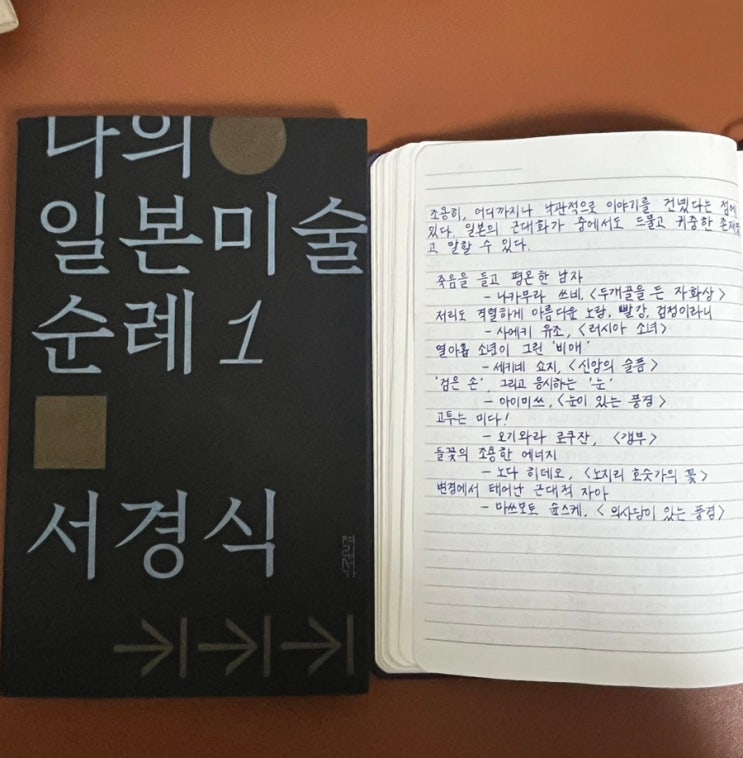 나의
일본미술
순례 1
서경식
조용히, 어디까지나 낙관적으로 이야기를 건넸다는 점에
있다. 일본의 근대화가 중에서도 드물고 귀중한
고 말할 수 있다.
죽음을 들고 평온한 남자
- 나카무라 쓰네, <두개골을 든 자화상>
저리도 격렬하게 아름다운 노랑, 빨강, 검정이라니
- 사에키 유조, <러시아 소녀>
열아홉 소년이 그린 '비애'
- 세키네 쇼지, <신앙의 슬픔>
'검은 손', 그리고 응시하는 '눈'
- 아이미쓰, <눈이 있는 풍경>
고투는 미다!
- 오기와라 로쿠잔, <갱부>
들꽃의 조용한 에너지
- 노다 히데오, <노지리 호숫가의 꽃>
변경에서 태어난 근대적 자아
- 마쓰모토 슌스케, <의사당이 있는 풍경>